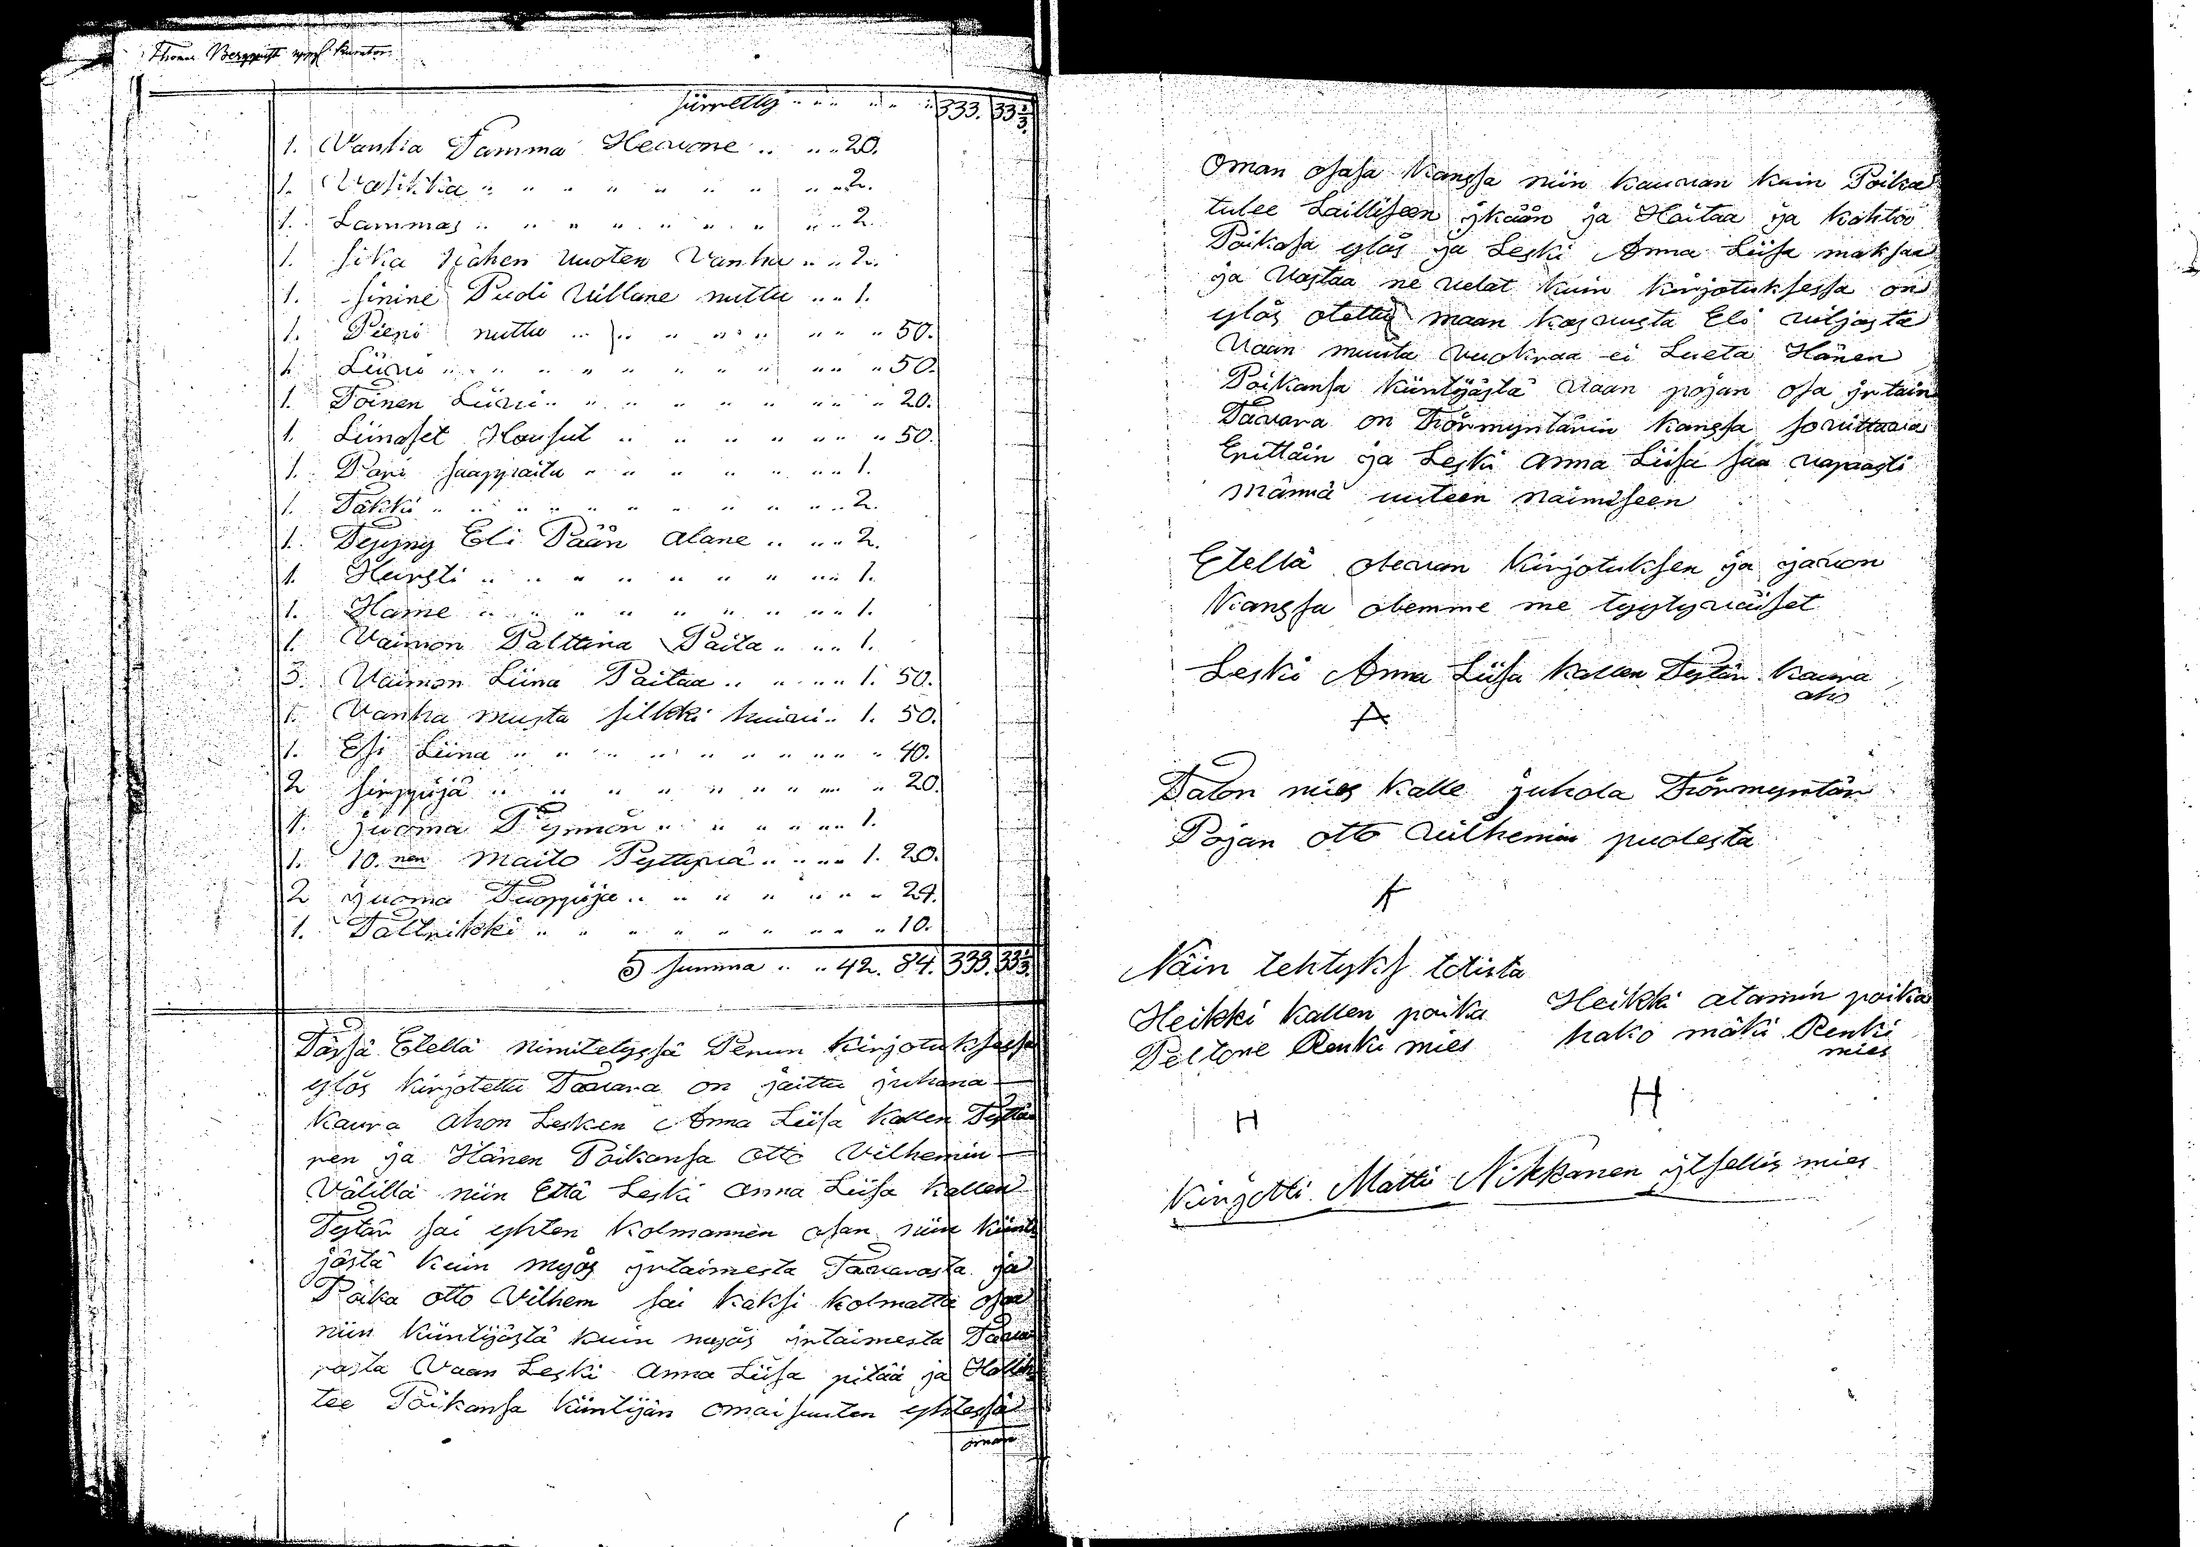 Thomas Bergqvist
siirretty .. .. .. .. 333. 33 1/3
1. Vanha Tamma Hevone .. .. .. 20.
1. Vasikka .. .. .. .. .. .. .. .. .. 2.
1. Lammas .. .. .. .. .. .. .. .. 2.
1. sika vuoten Vanha .. .. 2.
1. sinine Puoli villane nuttu .. .. 1.
1. Pieni nuttu .. .. .. .. .. .. .. 50.
1. Liivi .. .. .. .. .. .. .. .. .. 50.
1. Toinen Liivi .. .. .. .. .. .. .. 20.
1. Liinaset Housut .. .. .. .. .. .. 50.
1. Pari saappaita .. .. .. .. .. .. 1.
1. Täkki .. .. .. .. .. .. .. .. .. 2.
1. Tyyny Eli Pään alane .. .. .. 2.
1. Hursti .. .. .. .. .. .. .. .. 1.
1. Hame .. .. .. .. .. .. .. .. 1.
1. Vaimon Palttina Paita .. .. .. 1.
3. Vaimon Liina Paitaa .. .. .. .. 1. 50.
1. Vanha musta silkki huivi .. 1. 50.
1. Esi Liina .. .. .. .. .. .. .. .. 40.
2 sirppiijä .. .. .. .. .. .. .. .. 20.
1. juoma Tynnöri .. .. .. .. .. .. 1.
1. 10. nen maito Pyttyvä .. .. .. 1. 20.
2 juoma Tuoppija .. .. .. .. .. .. 24.
1. Taltrikki .. .. .. .. .. .. .. .. 10.
summa .. .. 42. 84. 333. 33 1/3
Tässä Etellä nimitetyssä Perun kirjotuksessa
ylös kirjotettu Taavara on jaittu juhana
Kaura ahon Lesken Anna Liisa Kallen Tyttä
ren ja Hänen Poikansa Otto Vilhemin
Välillä niin Että Leski Anna Liisa Kallen
Tytär sai yhten Kolmannen osan niin kiinti
jästä kuin myös irtaimesta Tavarasta ja
Poika otto Vilhem sai kaksi kolmatta osaa
niin kiintijästä kuin myös irtaimesta Taava
rasta Vaan Leski Anna Liisa pitää ja Hallit
tee Poikansa kiintijän omaisuuten yhtessä
oman
Oman osasa kanssa niin kauvan kuin Poika
tulee Lailliseen ikään ja Hoitaa ja kohtoo
Poikasa ylös ja Leski Anna Liisa maksaa
ja Vastaa ne velat kuin kirjotuksessa on
ylös otettu maan kasvusta Eli viljasta
Vaan muuta Vuokraa ei Lueta Hänen
Poikansa kiintijästä Vaan pojan osa irtain
Taavara on Förmyntärin kanssa sovittava
Erittäin ja Leski Anna Liisa saa vapaasti
männä uuteen naimiseen
Etellä olevan kirjotuksen ja javon
kanssa olemme me tyytyväiset
Leski Anna Liisa Kallen Tytär Kaura
aho
A
Talon mies Kalle juhola Förmyntär
Pojan otto Vilhemin puolesta
Näin tehtyks totista
Heikki Kallen poika
Peltone Renki mies
Heikki atamin poika
hako mäki Renki
mies
H
H
Kirjotti Matti Nikkanen itsellis mies